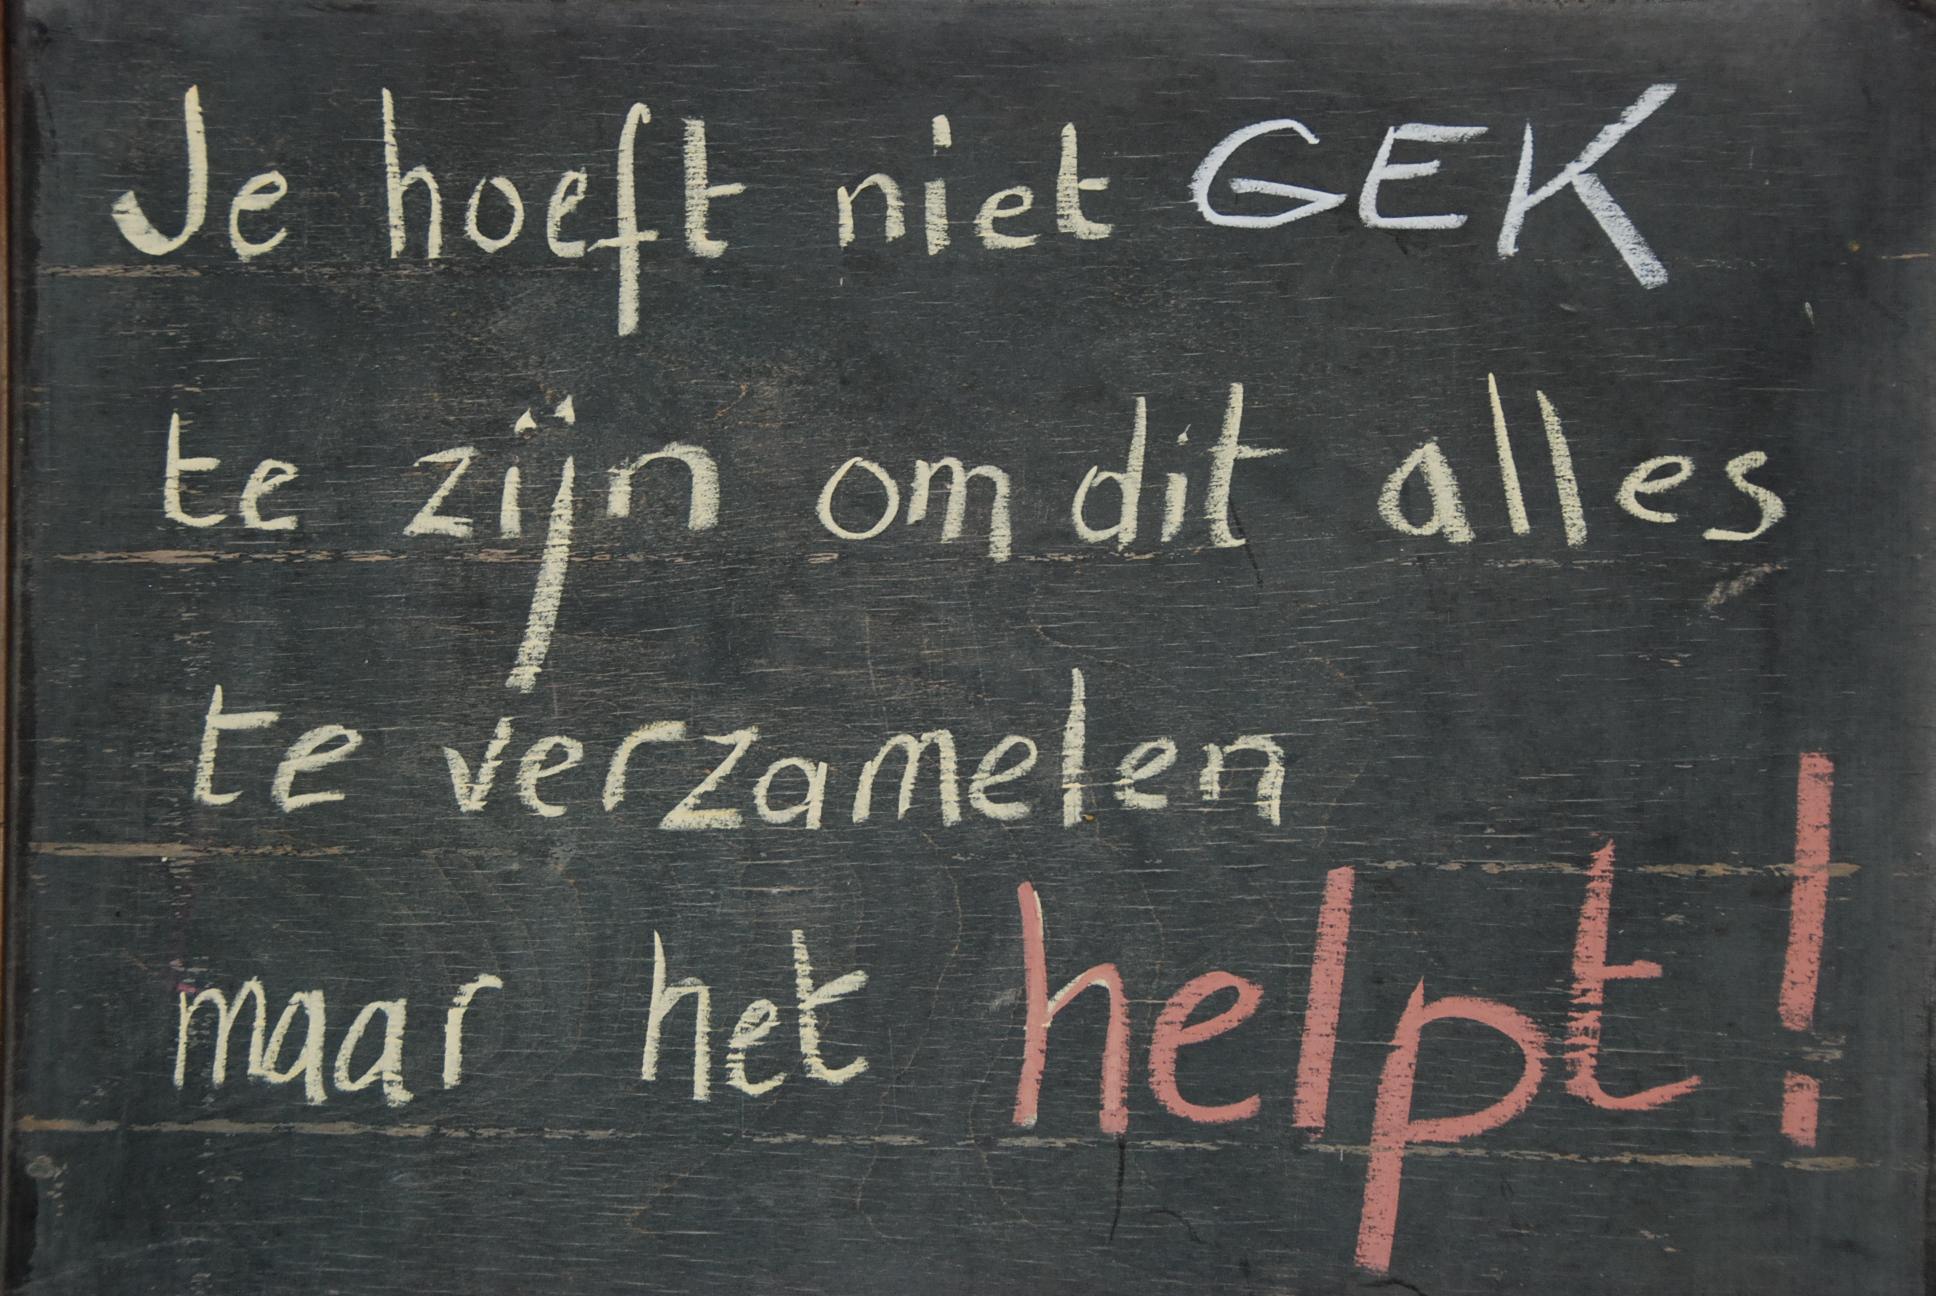 Je hoeft niet GEK
te zijn om dit alles
te verzamelen
maar het helpt!